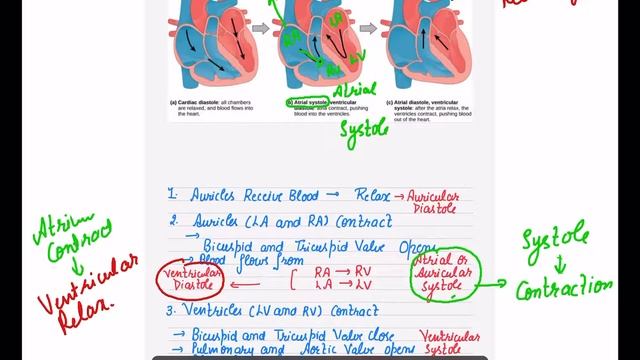 RA
LA
RV
LV
(a) Cardiac diastole: all chambers
are relaxed, and blood flows into
the heart.
(b) Atrial systole, ventricular
diastole: atria contract, pushing
blood into the ventricles.
(c) Atrial diastole, ventricular
systole: after the atria relax, the
ventricles contract, pushing blood
out of the heart.
Atrial
Systole
1. Auricles Receive Blood → Relax → Auricular
Diastole
2. Auricles (LA and RA) Contract
→
Bicuspid and Tricuspid Valve Opens
→ Blood flows from
RA → RV
LA → LV
Ventricular
Diastole
Atrial or
Auricular
Systole
Systole
↓
Contraction
Atrium
Contract
↓
Ventricular
Relax.
3. Ventricles (LV and RV) Contract
→ Bicuspid and Tricuspid Valve close
→ Pulmonary and Aortic Valve opens
Ventricular
Systole